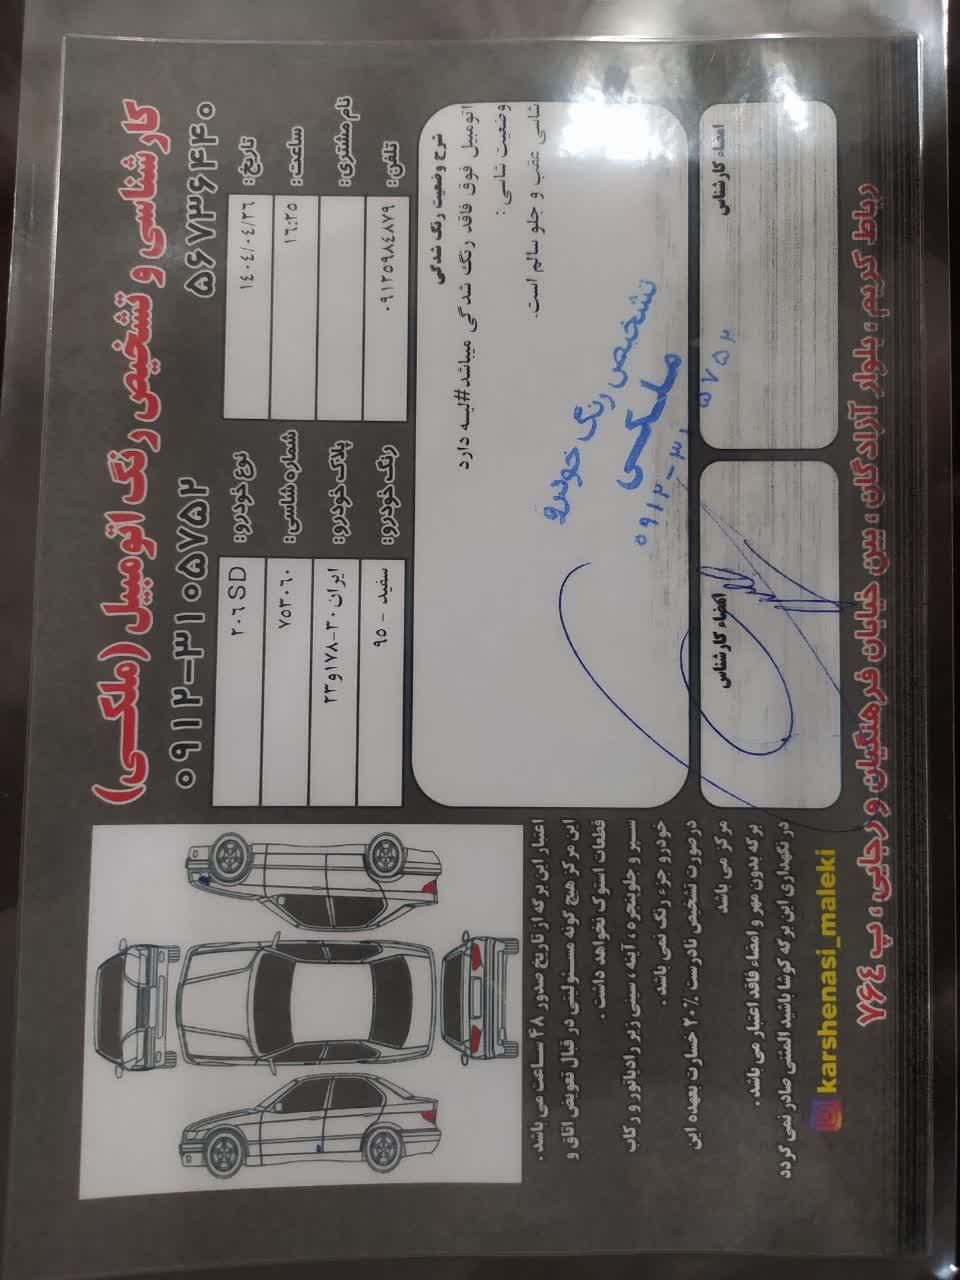 کارشناسی و تشخیص رنگ اتومبیل (ملکی)
۵۶۷۳۶۴۴۰
۰۹۱۲-۳۱۰۵۷۵۲
تاریخ: ۱٤۰٤/۰٤/۲٦
ساعت: ۱٦:۲۵
نام مشتری:
تلفن: ۰۹۱۲۵۹۸٤۸۷۹
نوع خودرو: ۲۰٦ SD
شماره شاسی: ۷۵۳۰٦۰
پلاک خودرو: ایران ۳۰-۱۷۸و۲۳
رنگ خودرو: سفید - ۹۵
شرح وضعیت رنگ شدگی
اتومبیل فوق فاقد رنگ شدگی میباشد#لیسه دارد
وضعیت شاسی :
شاسی عقب و جلو سالم است.
تشخیص رنگ خودرو
ملکی
۰۹۱۲-۳۱ ۵۷۵۲
امضاء کارشناس
امضاء کارشناس
اعتبار این برگه از تاریخ صدور ۴۸ ساعت می باشد .
این مرکز هیچ گونه مسئولیتی در قبال تعویض اتاق و
قطعات استوک نخواهد داشت .
سپر و جلوپنجره ، آینه ، سینی زیر رادیاتور و رکاب
خودرو جزء رنگ نمی باشد .
درصورت تشخیص نادرست ۲۰٪ خسارت بعهده این
مرکز می باشد
برگه بدون مهر و امضاء فاقد اعتبار می باشد .
در نگهداری این برگه کوشا باشید المثنی صادر نمی گردد
karshenasi_maleki
رباط کریم ، بلوار آزادگان ، بین خیابان فرهنگیان و رجایی ، پ ۷۶۴